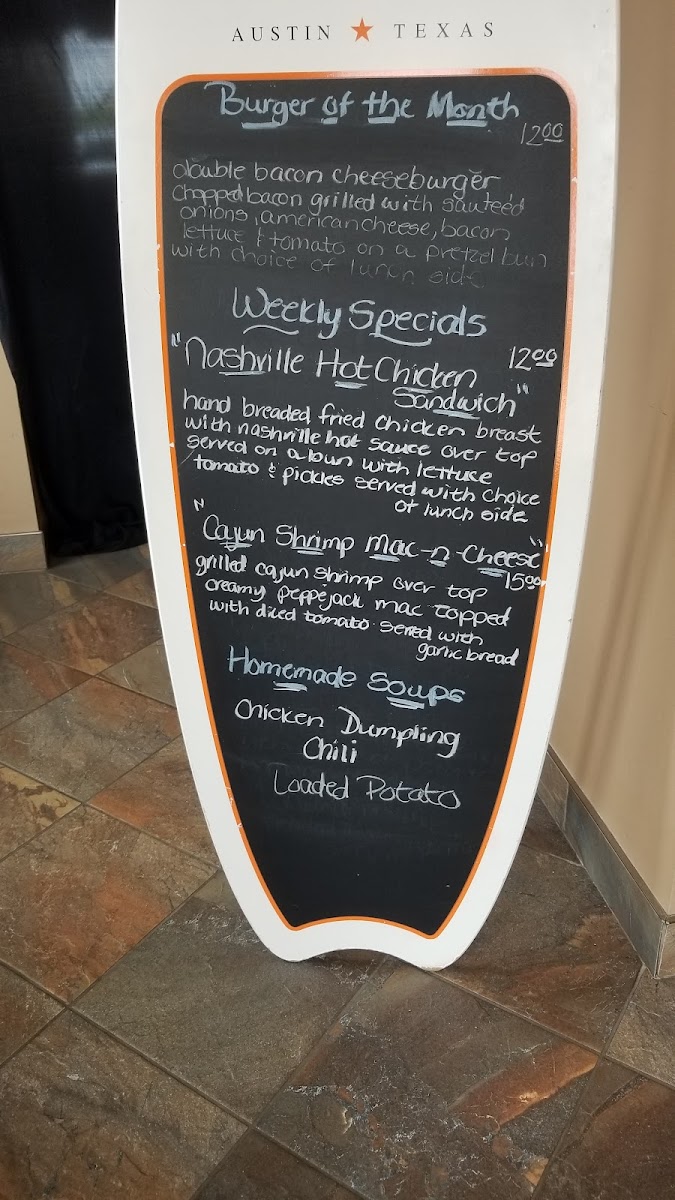 AUSTIN ★ TEXAS
Burger of the Month
12.00
double bacon cheeseburger
chopped bacon grilled with sauteéd
onions, american cheese, bacon
lettuce & tomato on a pretzel bun
with choice of lunch side
Weekly Specials
"Nashville Hot Chicken 12.00
Sandwich"
hand breaded fried chicken breast
with nashville hot sauce over top
served on a bun with lettuce
tomato & pickles served with choice
of lunch side
"Cajun Shrimp Mac-n-Cheese"
15.00
grilled cajun shrimp over top
creamy pepperjack mac topped
with diced tomato served with
garlic bread
Homemade Soups
Chicken Dumpling
Chili
Loaded Potato